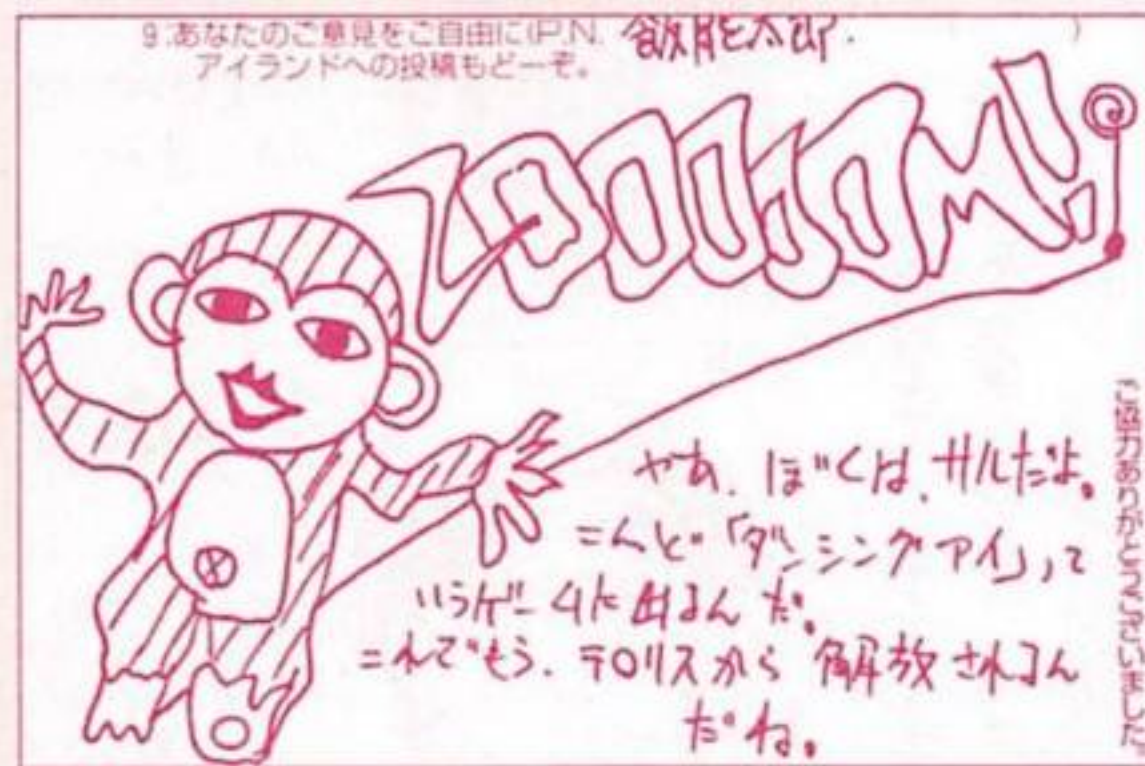 9.あなたのご意見をご自由に(P.N. 飯能太郎. )
アイランドへの投稿もどーぞ。
ZOOOOOM!!
やあ、ぼくは、サルだよ。
こんど「ダンシングアイ」って
いうゲームに出るんだ。
これでもう、テロリスから解放されるん
だね。
ご協力ありがとうございました。